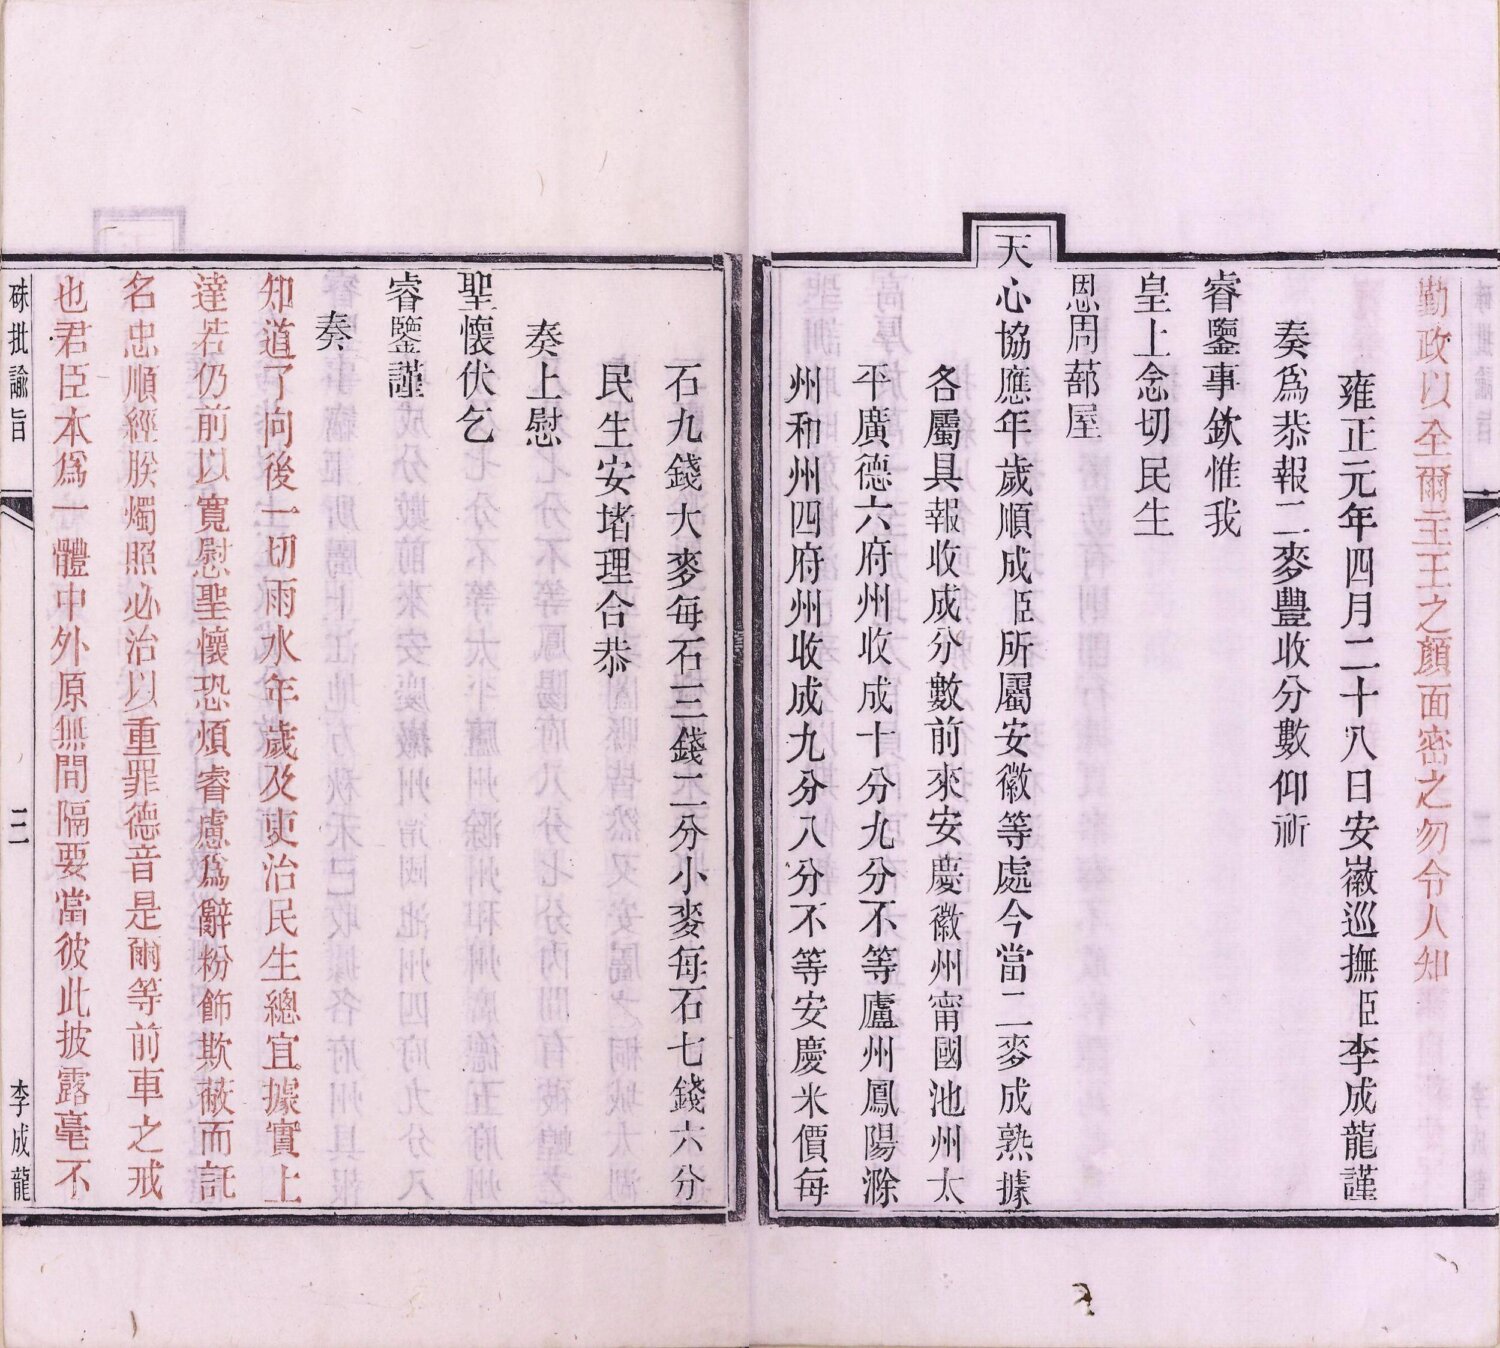 勤政以全爾主王之顏面密之勿令人知
雍正元年四月二十八日安徽巡撫臣李成龍謹
奏爲恭報二麥豐收分數仰祈
睿鑒事欽惟我
皇上念切民生
恩周蔀屋
天心協應年歲順成臣所屬安徽等處今當二麥成熟據
各屬具報收成分數前來安慶徽州甯國池州太
平廣德六府州收成十分九分不等廬州鳳陽滁
州和州四府州收成九分八分不等安慶米價每
石九錢大麥每石三錢二分小麥每石七錢六分
民生安堵理合恭
奏上慰
聖懷伏乞
睿鑒謹
奏
知道了向後一切雨水年歲及吏治民生總宜據實上
達若仍前以寬慰聖懷恐煩睿慮爲辭粉飾欺蔽而託
名忠順經朕燭照必治以重罪德音是爾等前車之戒
也君臣本爲一體中外原無間隔要當彼此披露毫不
硃批諭旨 三 李成龍